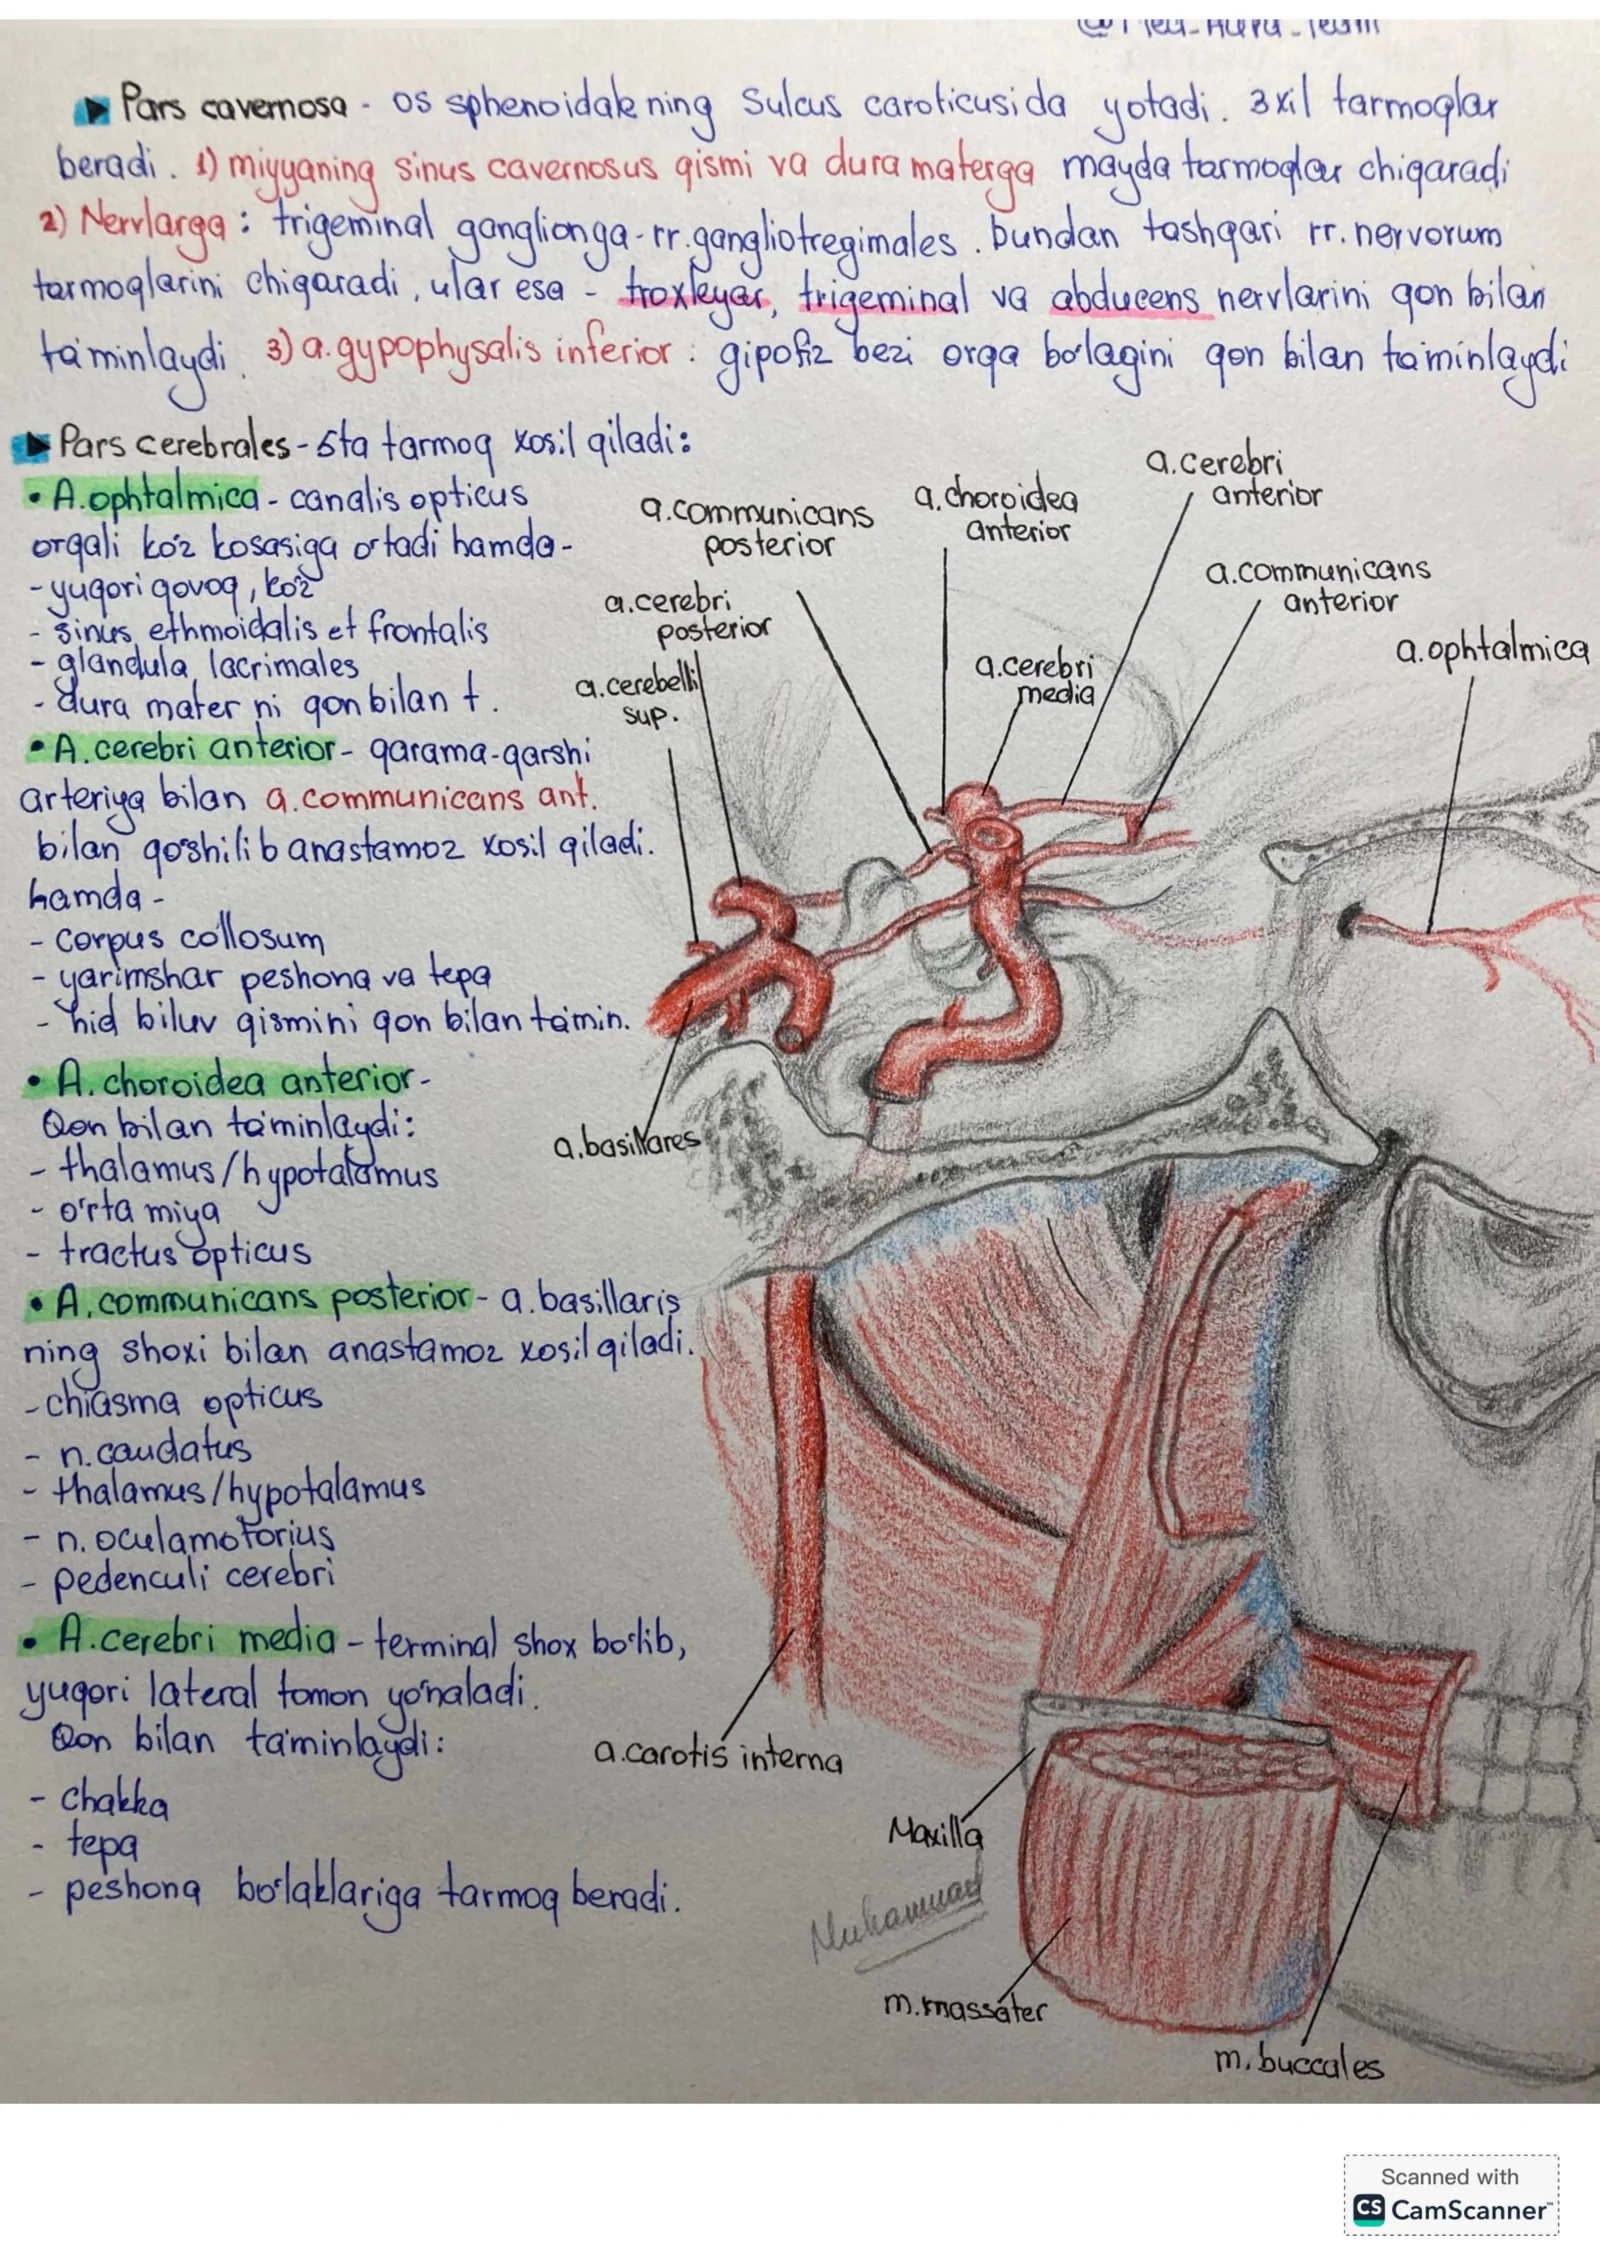 @Med_Aura_Team
Pars cavernosa - os sphenoidalening Sulcus caroticusida yotadi. 3 xil tarmoqlar
beradi. 1) miyyaning sinus cavernosus qismi va dura materga mayda tarmoqlar chiqaradi
2) Nervlarga: trigeminal ganglionga - rr.gangliotregimales. bundan tashqari rr.nervorum
tarmoqlarini chiqaradi, ular esa - troxleyar, trigeminal va abducens nervlarini qon bilan
ta'minlaydi. 3) a.gypophysalis inferior: gipofiz bezi orqa bo'lagini qon bilan ta'minlaydi
Pars cerebrales - 5ta tarmoq xosil qiladi:
• A.ophtalmica - canalis opticus
orqali ko'z kosasiga o'tadi hamda -
- yuqori qovoq, ko'z
- sinus ethmoidalis et frontalis
- glandula lacrimales
- dura mater ni qon bilan t.
• A.cerebri anterior - qarama-qarshi
arteriya bilan a.communicans ant.
bilan qo'shilib anastamoz xosil qiladi.
hamda -
- corpus collosum
- yarimshar peshona va tepa
- hid biluv qismini qon bilan ta'min.
• A.choroidea anterior -
Qon bilan ta'minlaydi:
- thalamus/hypotalamus
- o'rta miya
- tractus opticus
• A.communicans posterior - a.basillaris
ning shoxi bilan anastamoz xosil qiladi.
- chiasma opticus
- n.caudatus
- thalamus/hypotalamus
- n.oculamotorius
- pedenculi cerebri
• A.cerebri media - terminal shox bo'lib,
yuqori lateral tomon yo'naladi.
Qon bilan ta'minlaydi:
- chakka
- tepa
- peshona bo'laklariga tarmoq beradi.
a.communicans
posterior
a.choroidea
anterior
a.cerebri
anterior
a.communicans
anterior
a.ophtalmica
a.cerebri
posterior
a.cerebelli
sup.
a.cerebri
media
a.basillares
a.carotis interna
Maxilla
Muhammad
m.massater
m.buccales
Scanned with
CS CamScanner™